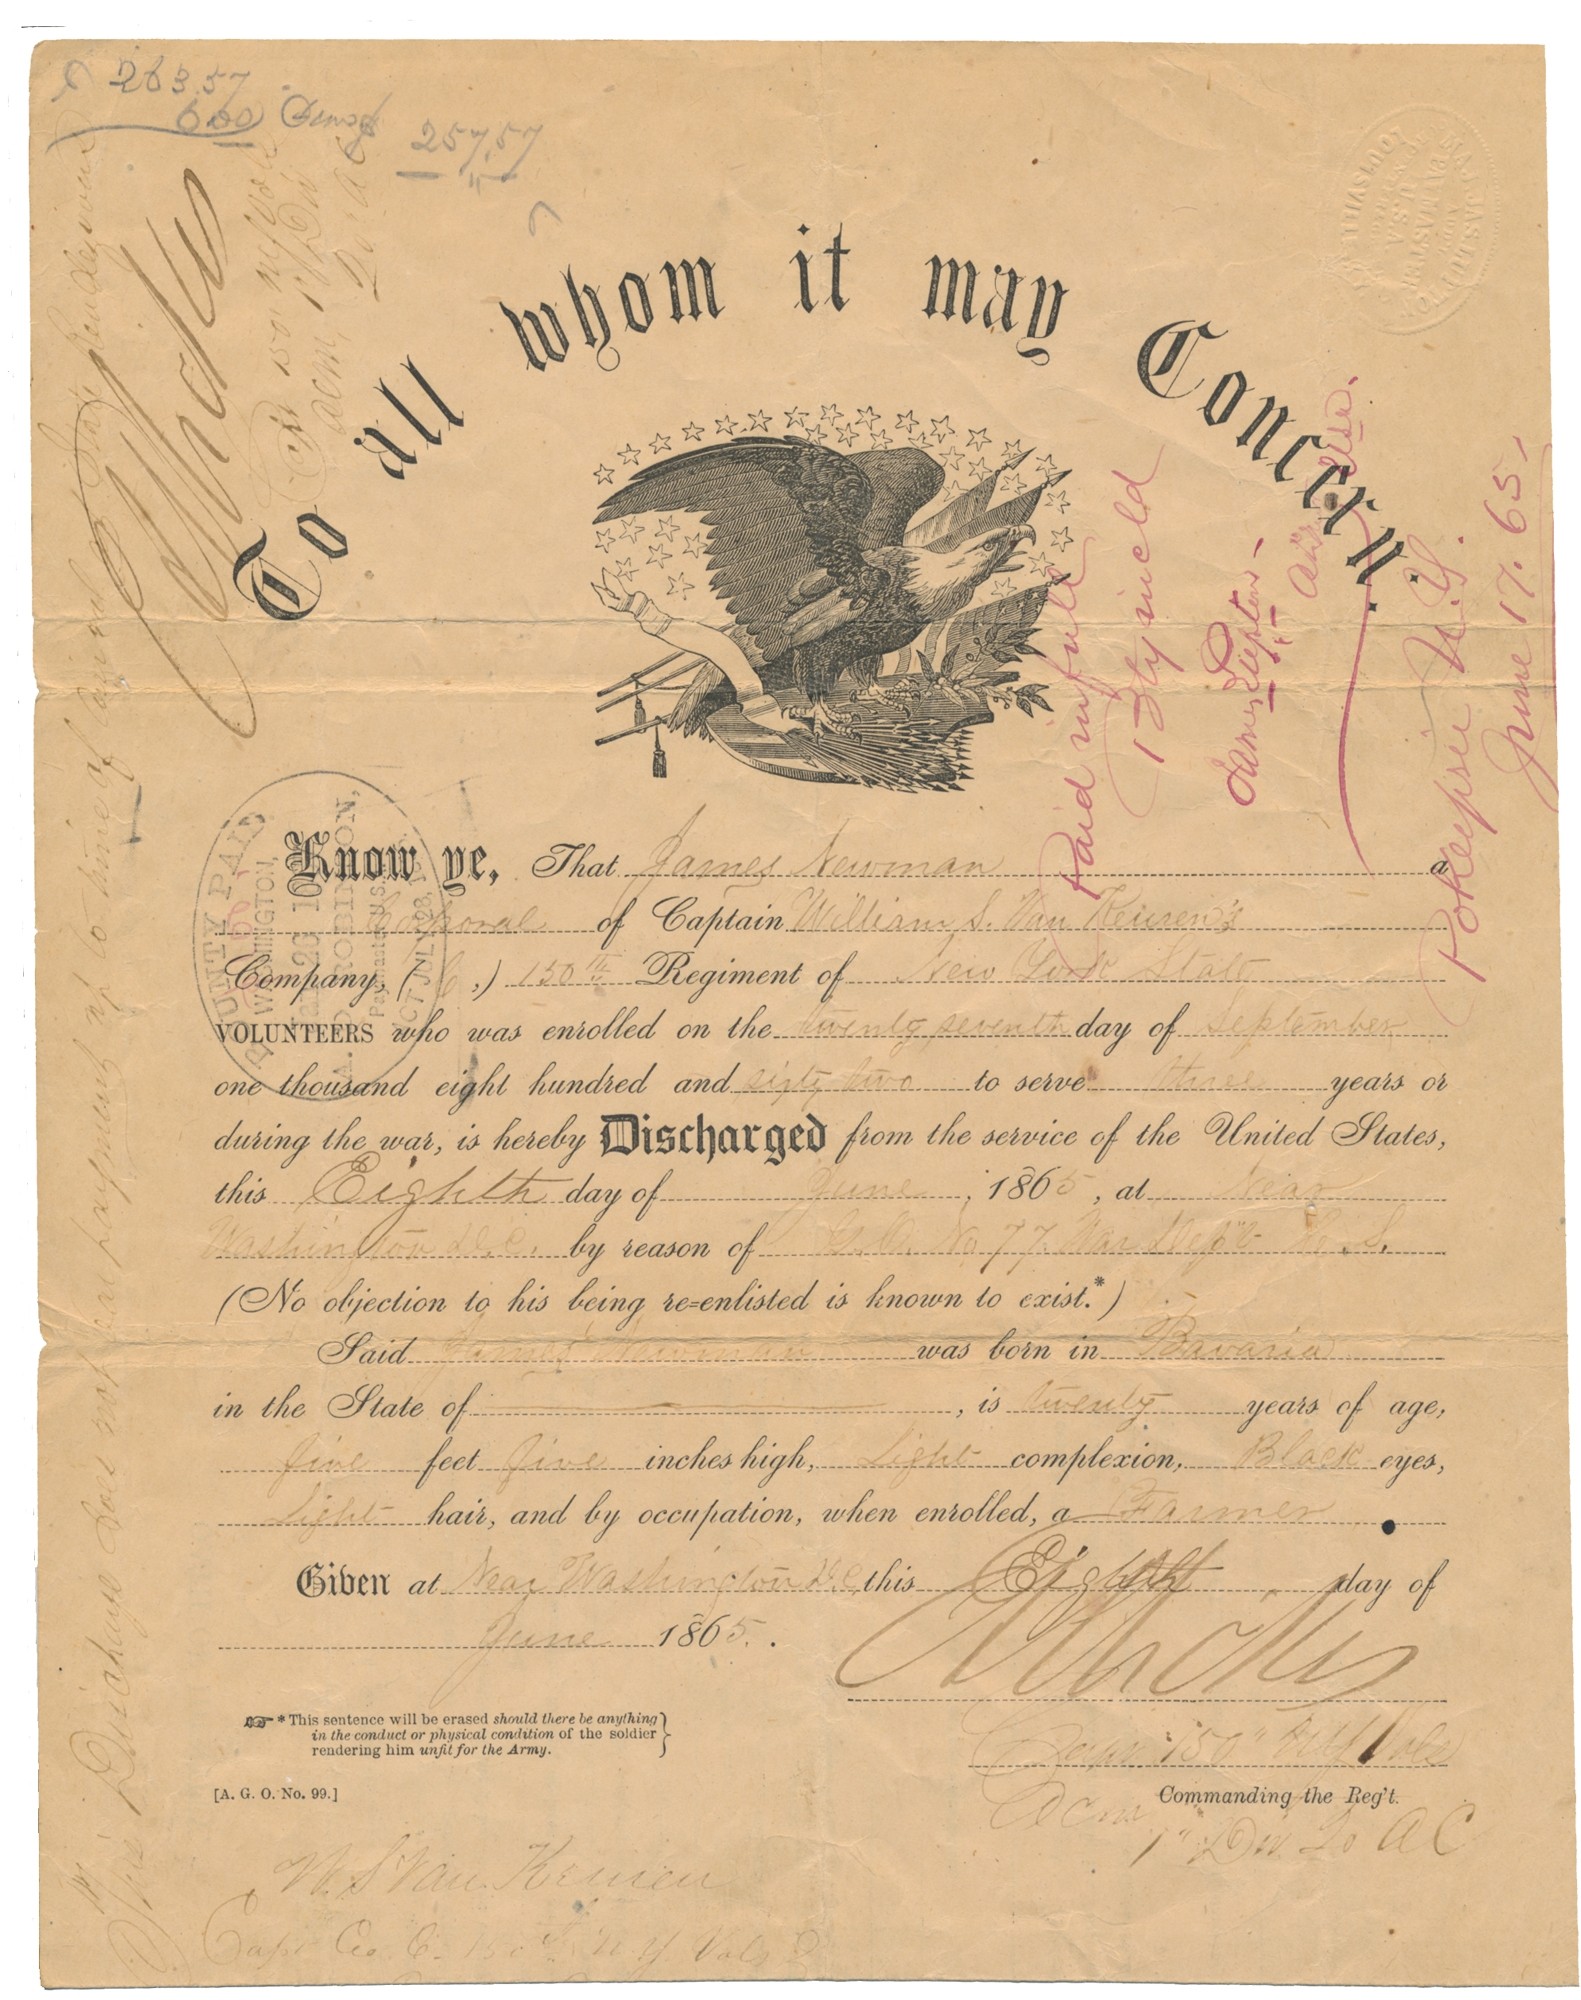 26357
600
257.57
To all whom it may Concern.
Paid in full
James
Pokeepsie N.Y.
June 17. 65
Know ye, That James Newman a
Corporal of Captain William S. Van Keuren's
Company, (C,) 150th Regiment of New York State
VOLUNTEERS who was enrolled on the twenty seventh day of September
one thousand eight hundred and sixty two to serve three years or
during the war, is hereby Discharged from the service of the United States,
this Eighth day of June, 1865, at Near
Washington D.C. by reason of G.O. No 77. War Dept
(No objection to his being re=enlisted is known to exist.*)
Said James Newman was born in Bavaria
in the State of , is twenty years of age,
five feet five inches high, Light complexion, Black eyes,
Light hair, and by occupation, when enrolled, a Farmer
Given at Near Washington D.C. this Eighth day of
June 1865.
*This sentence will be erased should there be anything
in the conduct or physical condition of the soldier
rendering him unfit for the Army.
[A. G. O. No. 99.]
150" NY Vols
Commanding the Reg't.
1" Div 20 A C
W. S. Van Keuren
Capt Co. C. 150th N.Y. Vols
This Discharge does not bear payment up to time of